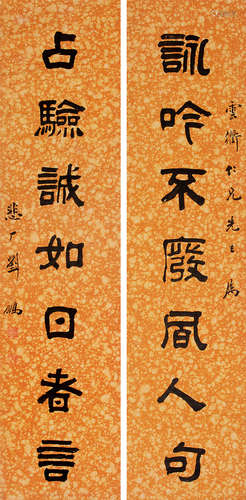 雲衢仁兄先生属
詠吟不廢風人句
占驗誠如日者言
悲厂劉鶚